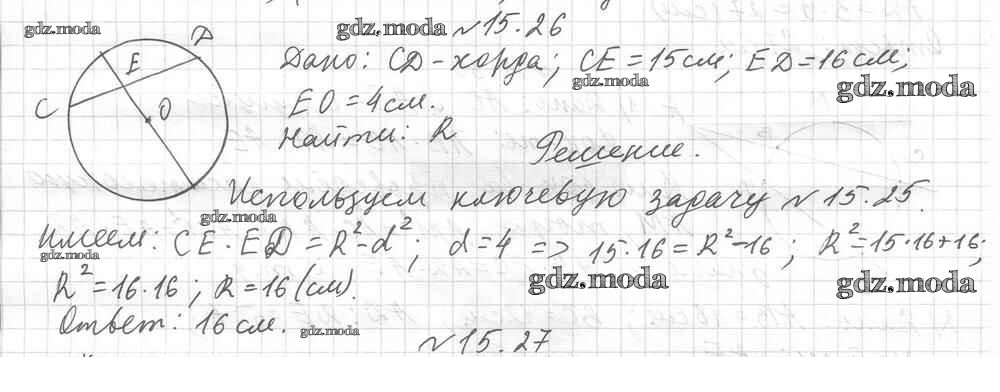 №15.26
Дано: CD - хорда; CE = 15 см; ED = 16 см;
EO = 4 см.
Найти: R
Решение.
Используем ключевую задачу №15.25.
Имеем: CE · ED = R² - d²; d = 4 => 15·16 = R² - 16; R² = 15·16 + 16;
R² = 16·16; R = 16 (см).
Ответ: 16 см.
№15.27
C
E
D
O
gdz.moda
gdz.moda
gdz.moda
gdz.moda
gdz.moda
gdz.moda
gdz.moda
gdz.moda
gdz.moda